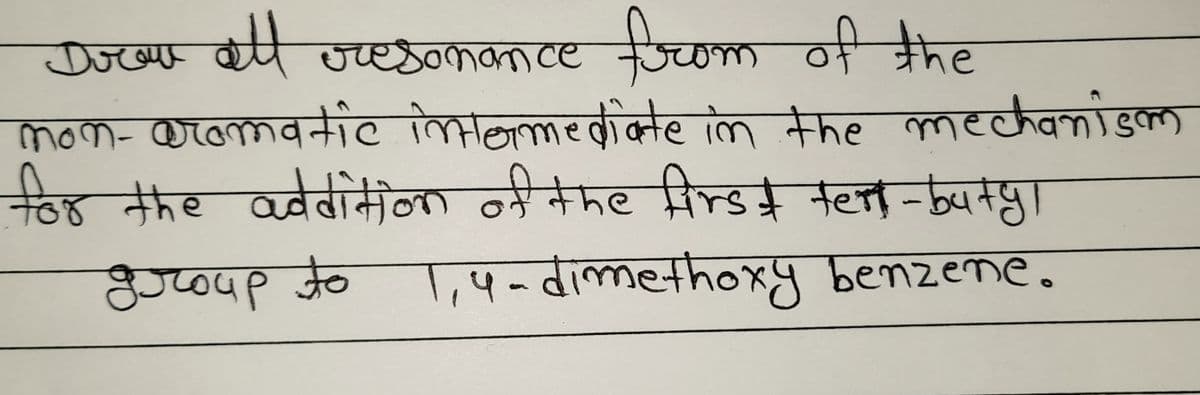 Draw all resonance from of the
non-aromatic intermediate in the mechanism
for the addition of the first tert-butyl
group to 1,4-dimethoxy benzene.